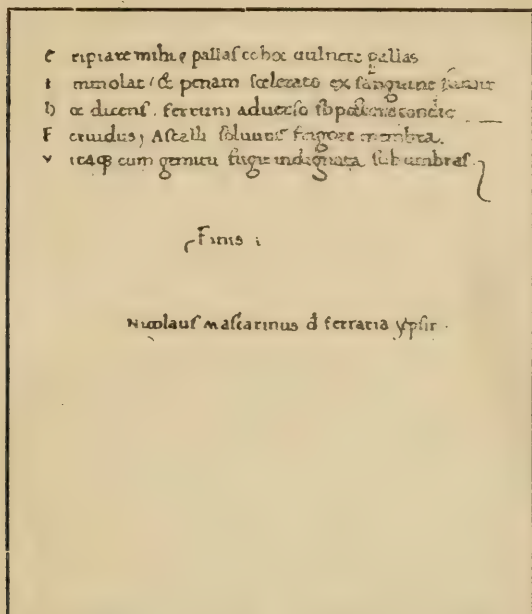 e ripiare mihi ę pallas te hoc uulnere pallas
i mmolat / & penam scelerato ex sanguine sumit
h oc dicens . ferrum aduerso sb pectore condit
F eruidus ; Ast illi soluunt frigore membra .
v itaqꝫ cum gemitu fugit indignata sub umbras .
Finis ;
Nicolaus Mascarinus d ferraria .